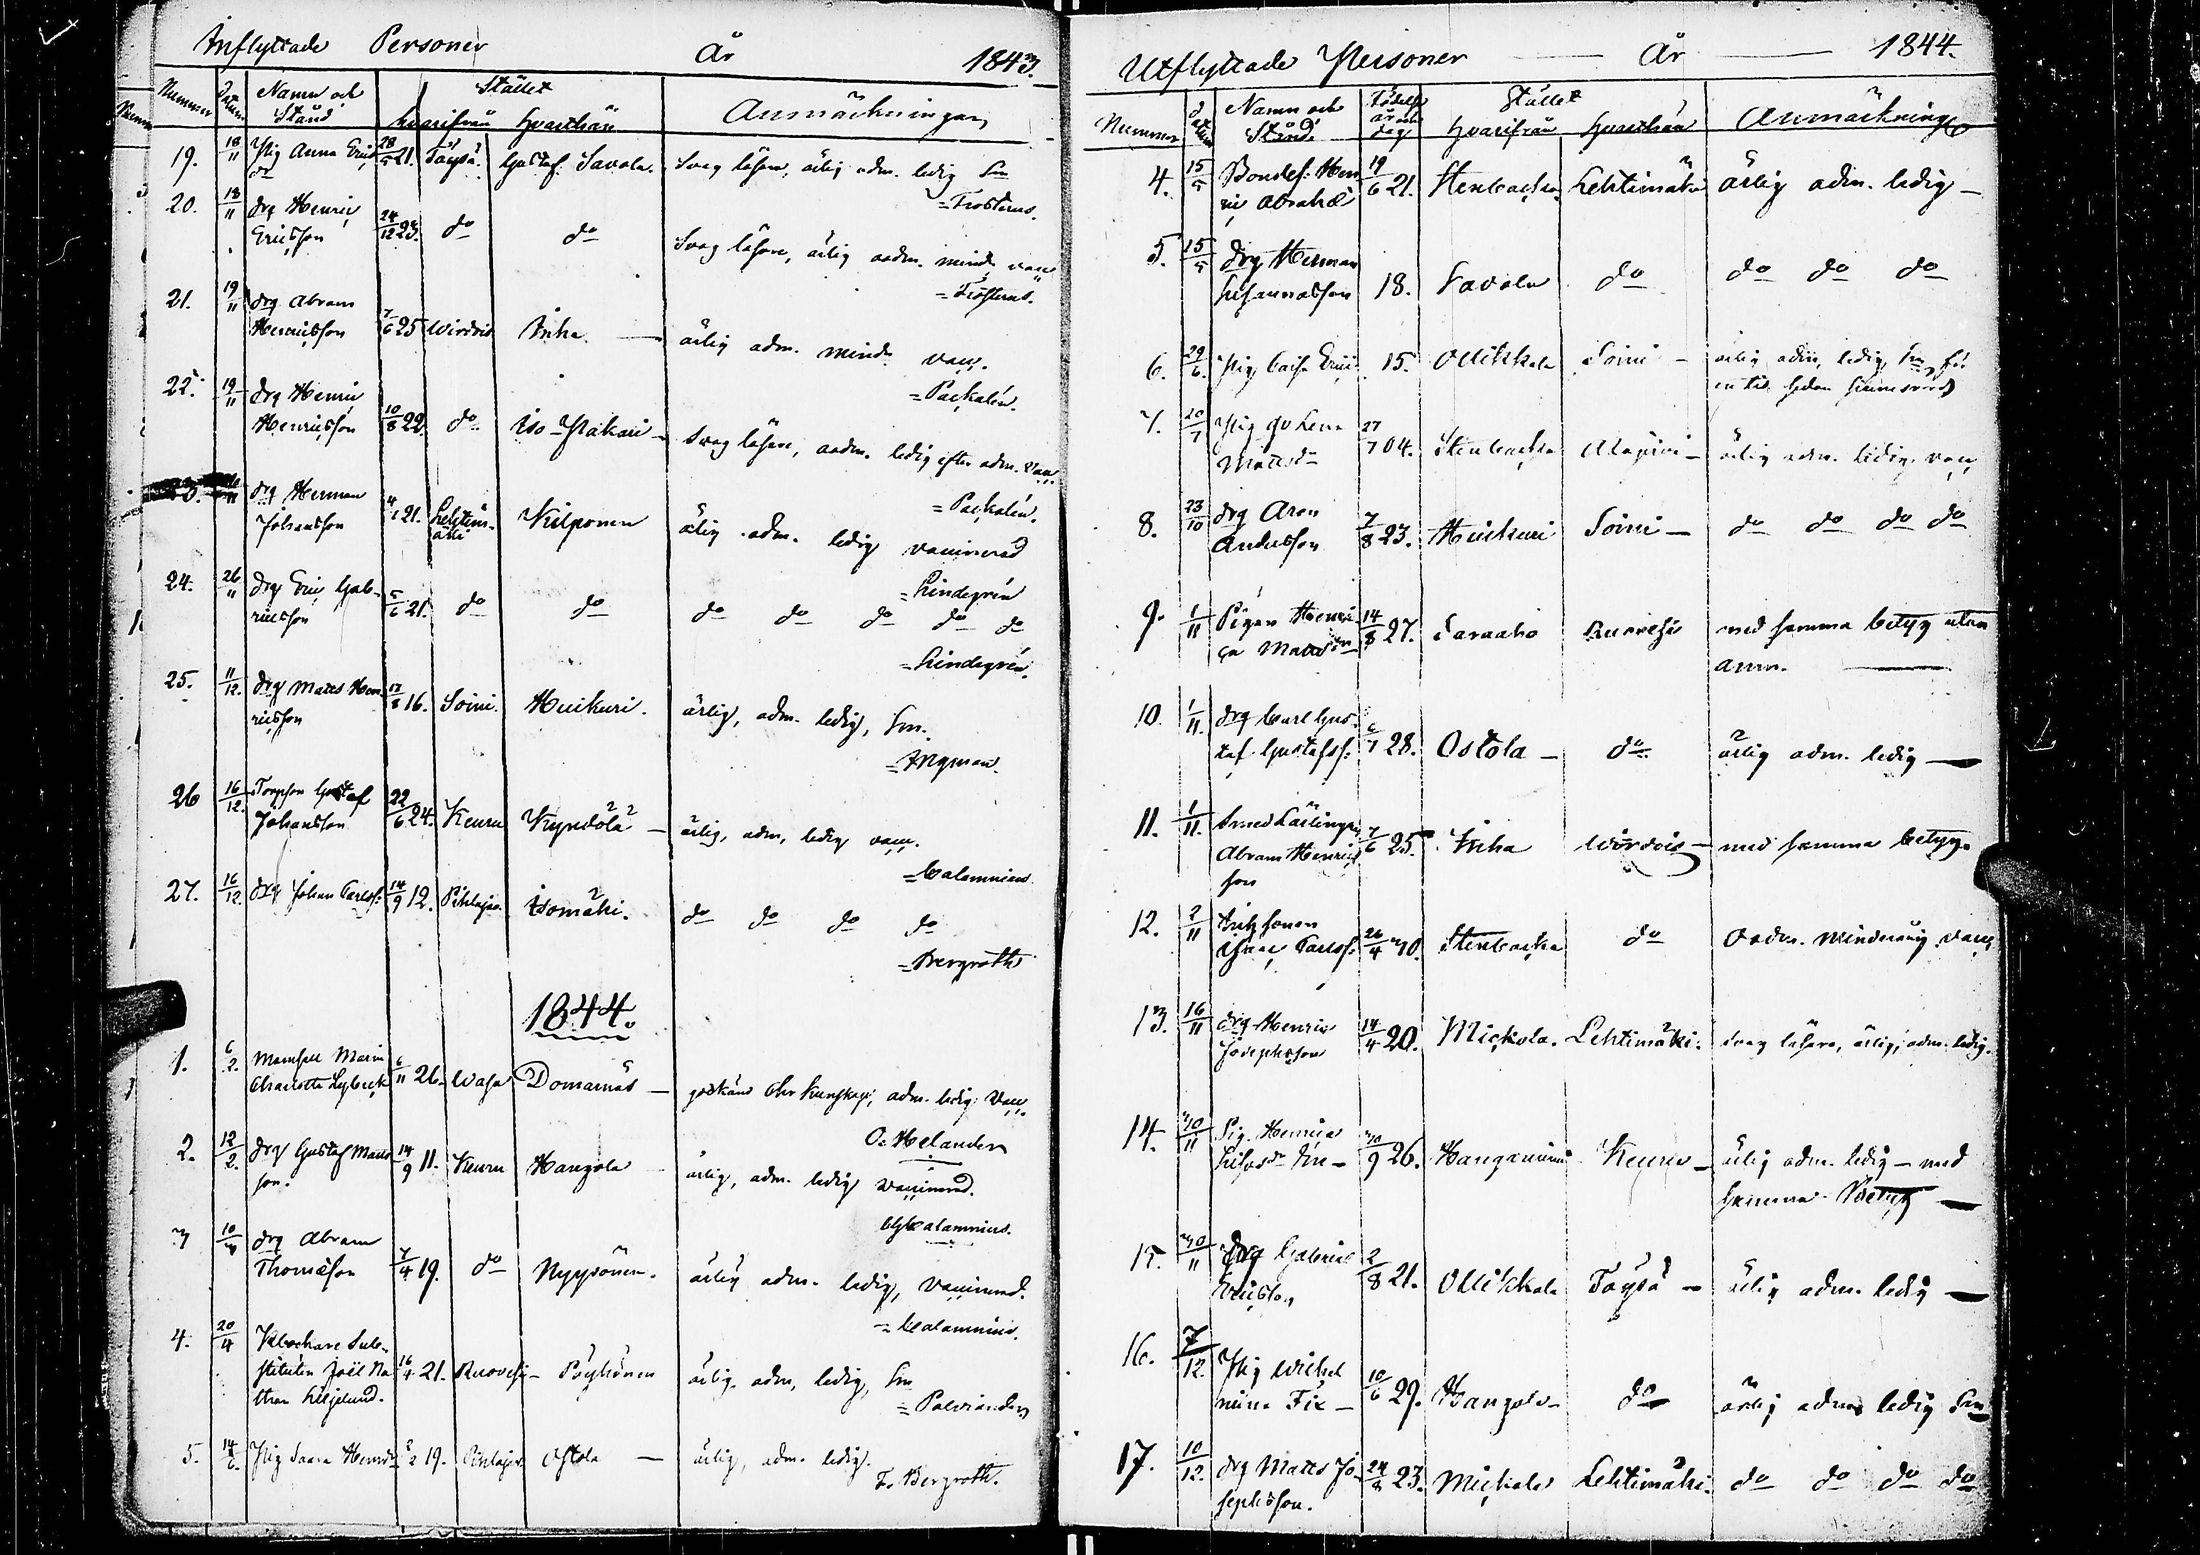 Inflyttade Personer År 1843.
Nummer Datum Namn och Stånd Stället hvarifrån hvarthän Anmärkningar
19. 18/11 Pig Anna Erics dr 28/5 21. Töysä Gustaf Savola. Svag läsare, ärlig adm. ledig
= Frosterus.
20. 18/11 drg Henric Ericsson 24/12 23. do do Svag läsare, ärlig oadm. mind. vacc
= Frosterus.
21. 19/11 drg Abram Henricsson 7/6 25 Wirdois Inha — ärlig adm. mind. vacc.
= Packalén.
22. 19/11 drg Henric Henricsson 10/8 22. do Iso-Pakari — Svag läsare, oadm. ledig efter adm. vacc
= Packalén.
23. drg Herman Johansson 4/1 21. Lehtimäki Kilponen ärlig adm. ledig vaccinerad
= Lindegrén
24. 26/11 drg Eric Gabricsson 5/6 21. do do do do do do do
= Lindegrén.
25. 11/12. drg Matts Henricsson 17/8 16. Soini. Huikuri. ärlig, adm. ledig,
= Ingman.
26 16/12. Gustaf Johansson 22/6 24. Keuru Kyndölä — ärlig, adm, ledig vacc.
= Calamnius.
27. 16/12. drg Johan Carlss. 14/9 12. Pihlajav. Isomäki. do do do do
= Bergroth
1844.
1. 6/2. Mamsell Maria Charlotta Lybeck 6/11 26. Wasa Domarnäs — godkänd Chr kunskap, adm. ledig vacc.
O. Helander
2. 12/2. drg Gustaf Mattsson. 14/9 11. Keuru Hangola — ärlig, adm. ledig vaccinerad.
Calamnius.
3 drg Abram Thomasson 7/4 19. do Nyysönen. ärlig adm. ledig, vaccinerad.
= Calamnius.
4. 20/4 Klockare Substituten Joel Nathan Liljelund. 16/4 21. Ruovesi — Pöyhönen ärlig. adm, ledig,
= Palviander
5. 14/6. Pig Saara Henricsdr 19. Pihlajav. Ostola — ärlig, adm. ledig.
F. Bergroth.
Utflyttade Personer — År — 1844.
Nummer Datum Namn och Stånd. Födelse år och dag Stället hvarifrån hvarthän Anmärkningar
4. 15/5 Bondes. Henric Abrahs 19/6 21. Stenbacka Lehtimäki ärlig adm. ledig —
5. 15/5 drg Herman Johannesson 18. Savola do do do do
6. 29/6. Pig Caisa Eric 15. Ollikkala Soini — ärlig, adm, ledig,
7. 20/7 Pig Lena Mattsdr 27/7 04. Stenbacka Alajärvi — ärlig adm. ledig. vacc
8. 23/10 drg Aron Andersson 7/8 23. Huikuri Soini — do do do do
9. 1/11 Pigan Henrica Mattsdr 14/8 27. Saraaho Ruovesi med samma betyg utan anm. —
10. 1/11. drg Carl Gustaf Gustafss. 6/7 28. Ostola — do ärlig adm. ledig —
11. 1/11. Smed Lärlingen Abram Henricsson 7/6 25. Inha Wirdois — med samma betyg.
12. 2/11 Isac Carlss. 26/4 30. Stenbacka do Oadm. minderårig vacc
13. 16/11 drg Henric Josephsson 14/4 20. Mickola. Lehtimäki. svag läsare, ärlig, adm. ledig.
14. 30/11 Pig. Henrica 30/9 26. Hanganiemi Keuru — ärlig adm. ledig — med samma Betyg —
15. 30/11 drg Gabriel Ericsson 2/8 21. Ollikkala Töysä — ärlig adm. ledig —
16. 7/12. Pig Wilhelmina Fix — 10/6 29. Hangola — do ärlig adm. ledig
17. 10/12. drg Matts Josephsson. 24/8 23. Mickola Lehtimäki. do do do do